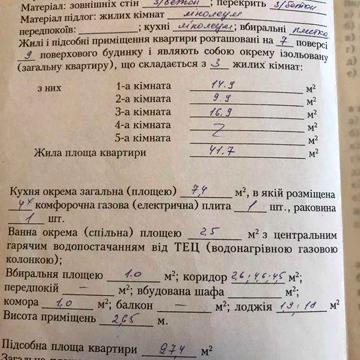 Матеріал: зовнішніх стін з/бетон; перекрить з/бетон
Матеріал підлог: жилих кімнат лінолеум
передпокоїв: ; кухні лінолеум; вбиральні плитка
Жилі і підсобні приміщення квартири розташовані на 7 поверсі
9 поверхового будинку і являють собою окрему ізольовану
(загальну квартиру), що складається з 3 жилих кімнат:
з них 1-а кімната 14.9 м²
2-а кімната 9.9 м²
3-а кімната 16.9 м²
4-а кімната м²
5-а кімната м²
Жила площа квартири 41.7 м²
Кухня окрема загальна (площею) 7.4 м², в якій розміщена
4х комфорочна газова (електрична) плита 1 шт., раковина
1 шт.
Ванна окрема (спільна) площею 2.5 м² з центральним
гарячим водопостачанням від ТЕЦ (водонагрівною газовою
колонкою);
Вбиральня площею 1.0 м²; коридор 2.6; 4.6; 4.5 м²;
передпокій — м²; вбудована шафа м²;
комора 1.0 м²; балкон — м²; лоджія м²
Висота приміщень 2.65 м.
Підсобна площа квартири м²